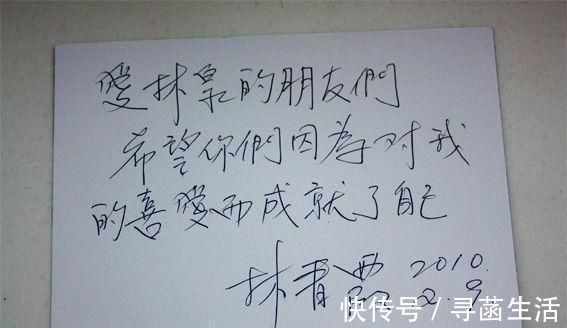 愛林泉的朋友們
希望你們因為对我
的喜愛而成就了自己
林青霞 2010.
2.9.
快传号 / 寻菡生活